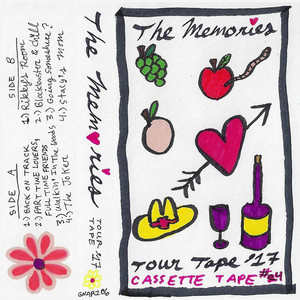 SIDE A
1) BACK ON TRACK
2) PART TIME LOVERS,
FULL TIME FRIENDS
3) Walkin' In the Woods
4) The Joker
SIDE B
1) Rikky's Room
2) Blockbuster & Chill
3) Going Somewhere?
4) Stacy's Mom
The Memories
TOUR '17
TAPE
GNAR206
The Memories
Tour Tape '17
CASSETTE TAPE #24